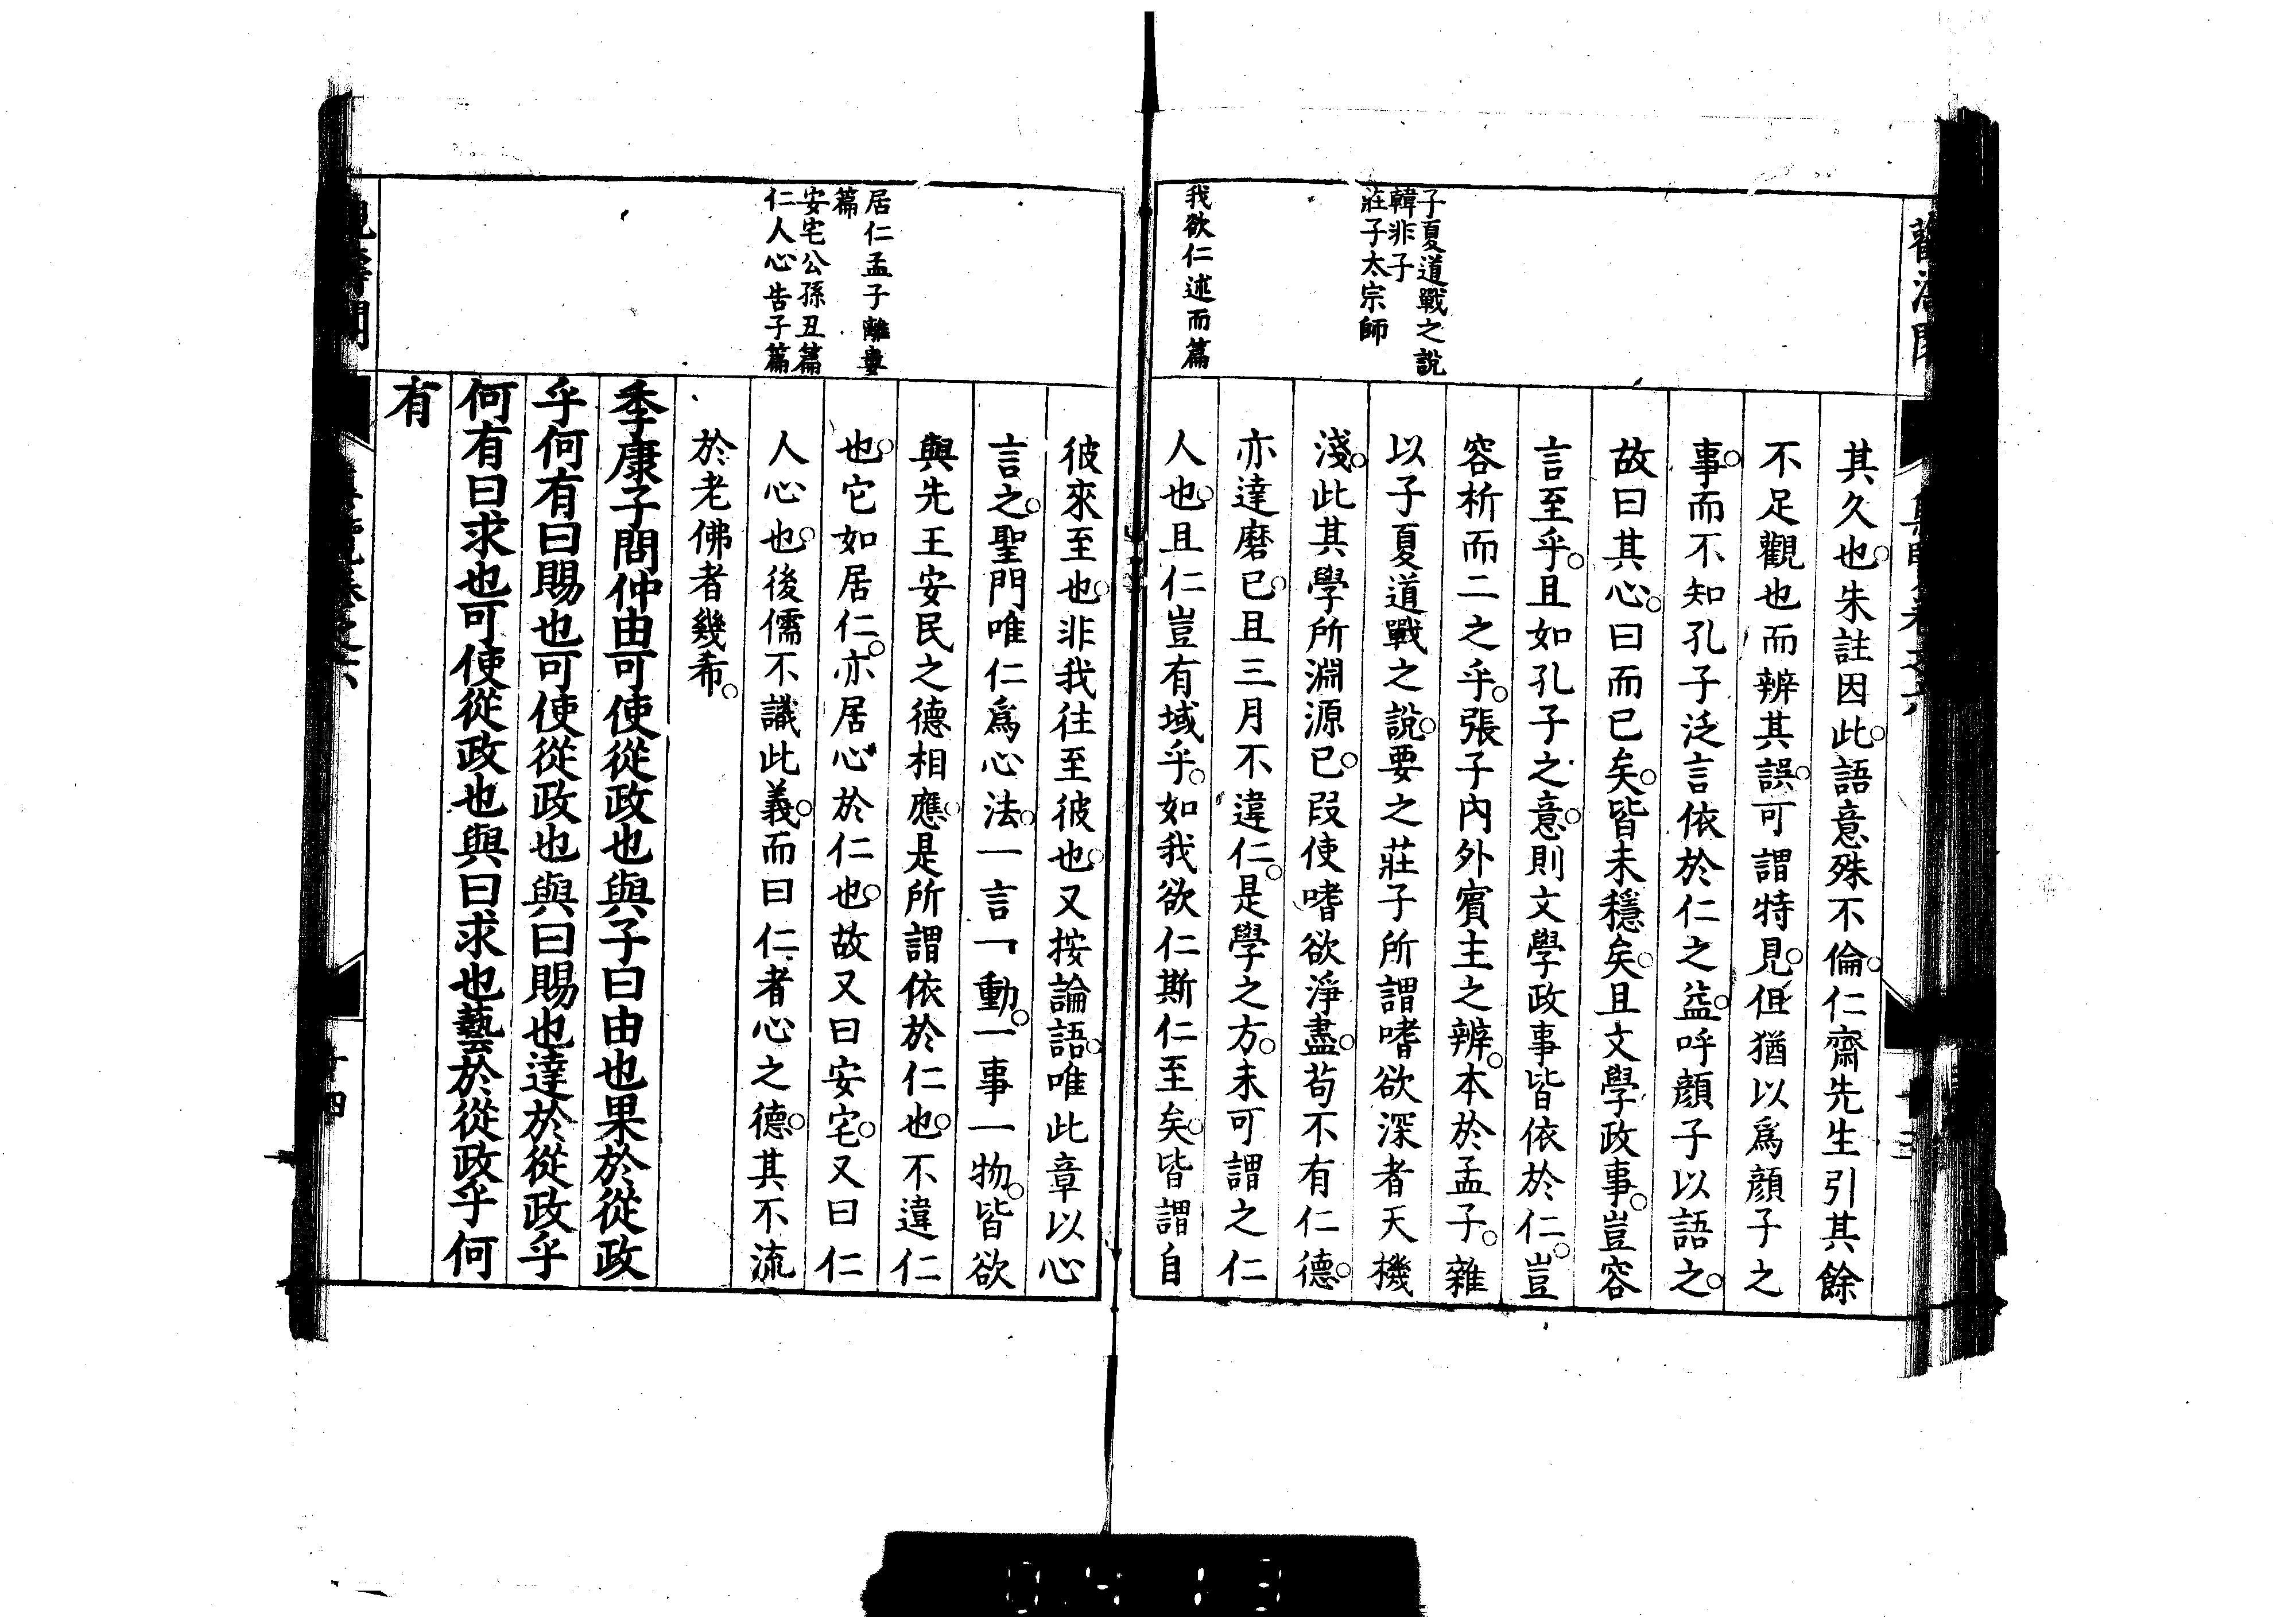 子夏道戰之說
韓非子
莊子太宗師
我欲仁述而篇
其久也。朱註因此。語意殊不倫。仁齋先生引其餘
不足觀也而辨其誤。可謂特見。但猶以爲顏子之
事。而不知孔子泛言依於仁之益。呼顏子以語之。
故曰其心。曰而已矣。皆未穩矣。且文學政事。豈容
言至乎。且如孔子之意。則文學政事皆依於仁。豈
容析而二之乎。張子內外賓主之辨。本於孟子。雜
以子夏道戰之說。要之莊子所謂嗜欲深者天機
淺。此其學所淵源已。叚使嗜欲淨盡。苟不有仁德。
亦達磨已。且三月不違仁。是學之方。未可謂之仁
人也。且仁豈有域乎。如我欲仁斯仁至矣。皆謂自
居仁孟子離婁
篇
安宅公孫丑篇
仁人心告子篇
彼來至也。非我往至彼也。又按論語。唯此章以心
言之。聖門唯仁爲心法。一言一動。一事一物。皆欲
與先王安民之德相應。是所謂依於仁也。不違仁
也。它如居仁。亦居心於仁也。故又曰安宅。又曰仁
人心也。後儒不識此義。而曰仁者心之德。其不流
於老佛者幾希。
季康子問仲由可使從政也與子曰由也果於從政
乎何有曰賜也可使從政也與曰賜也達於從政乎
何有曰求也可使從政也與曰求也藝於從政乎何
有
十四